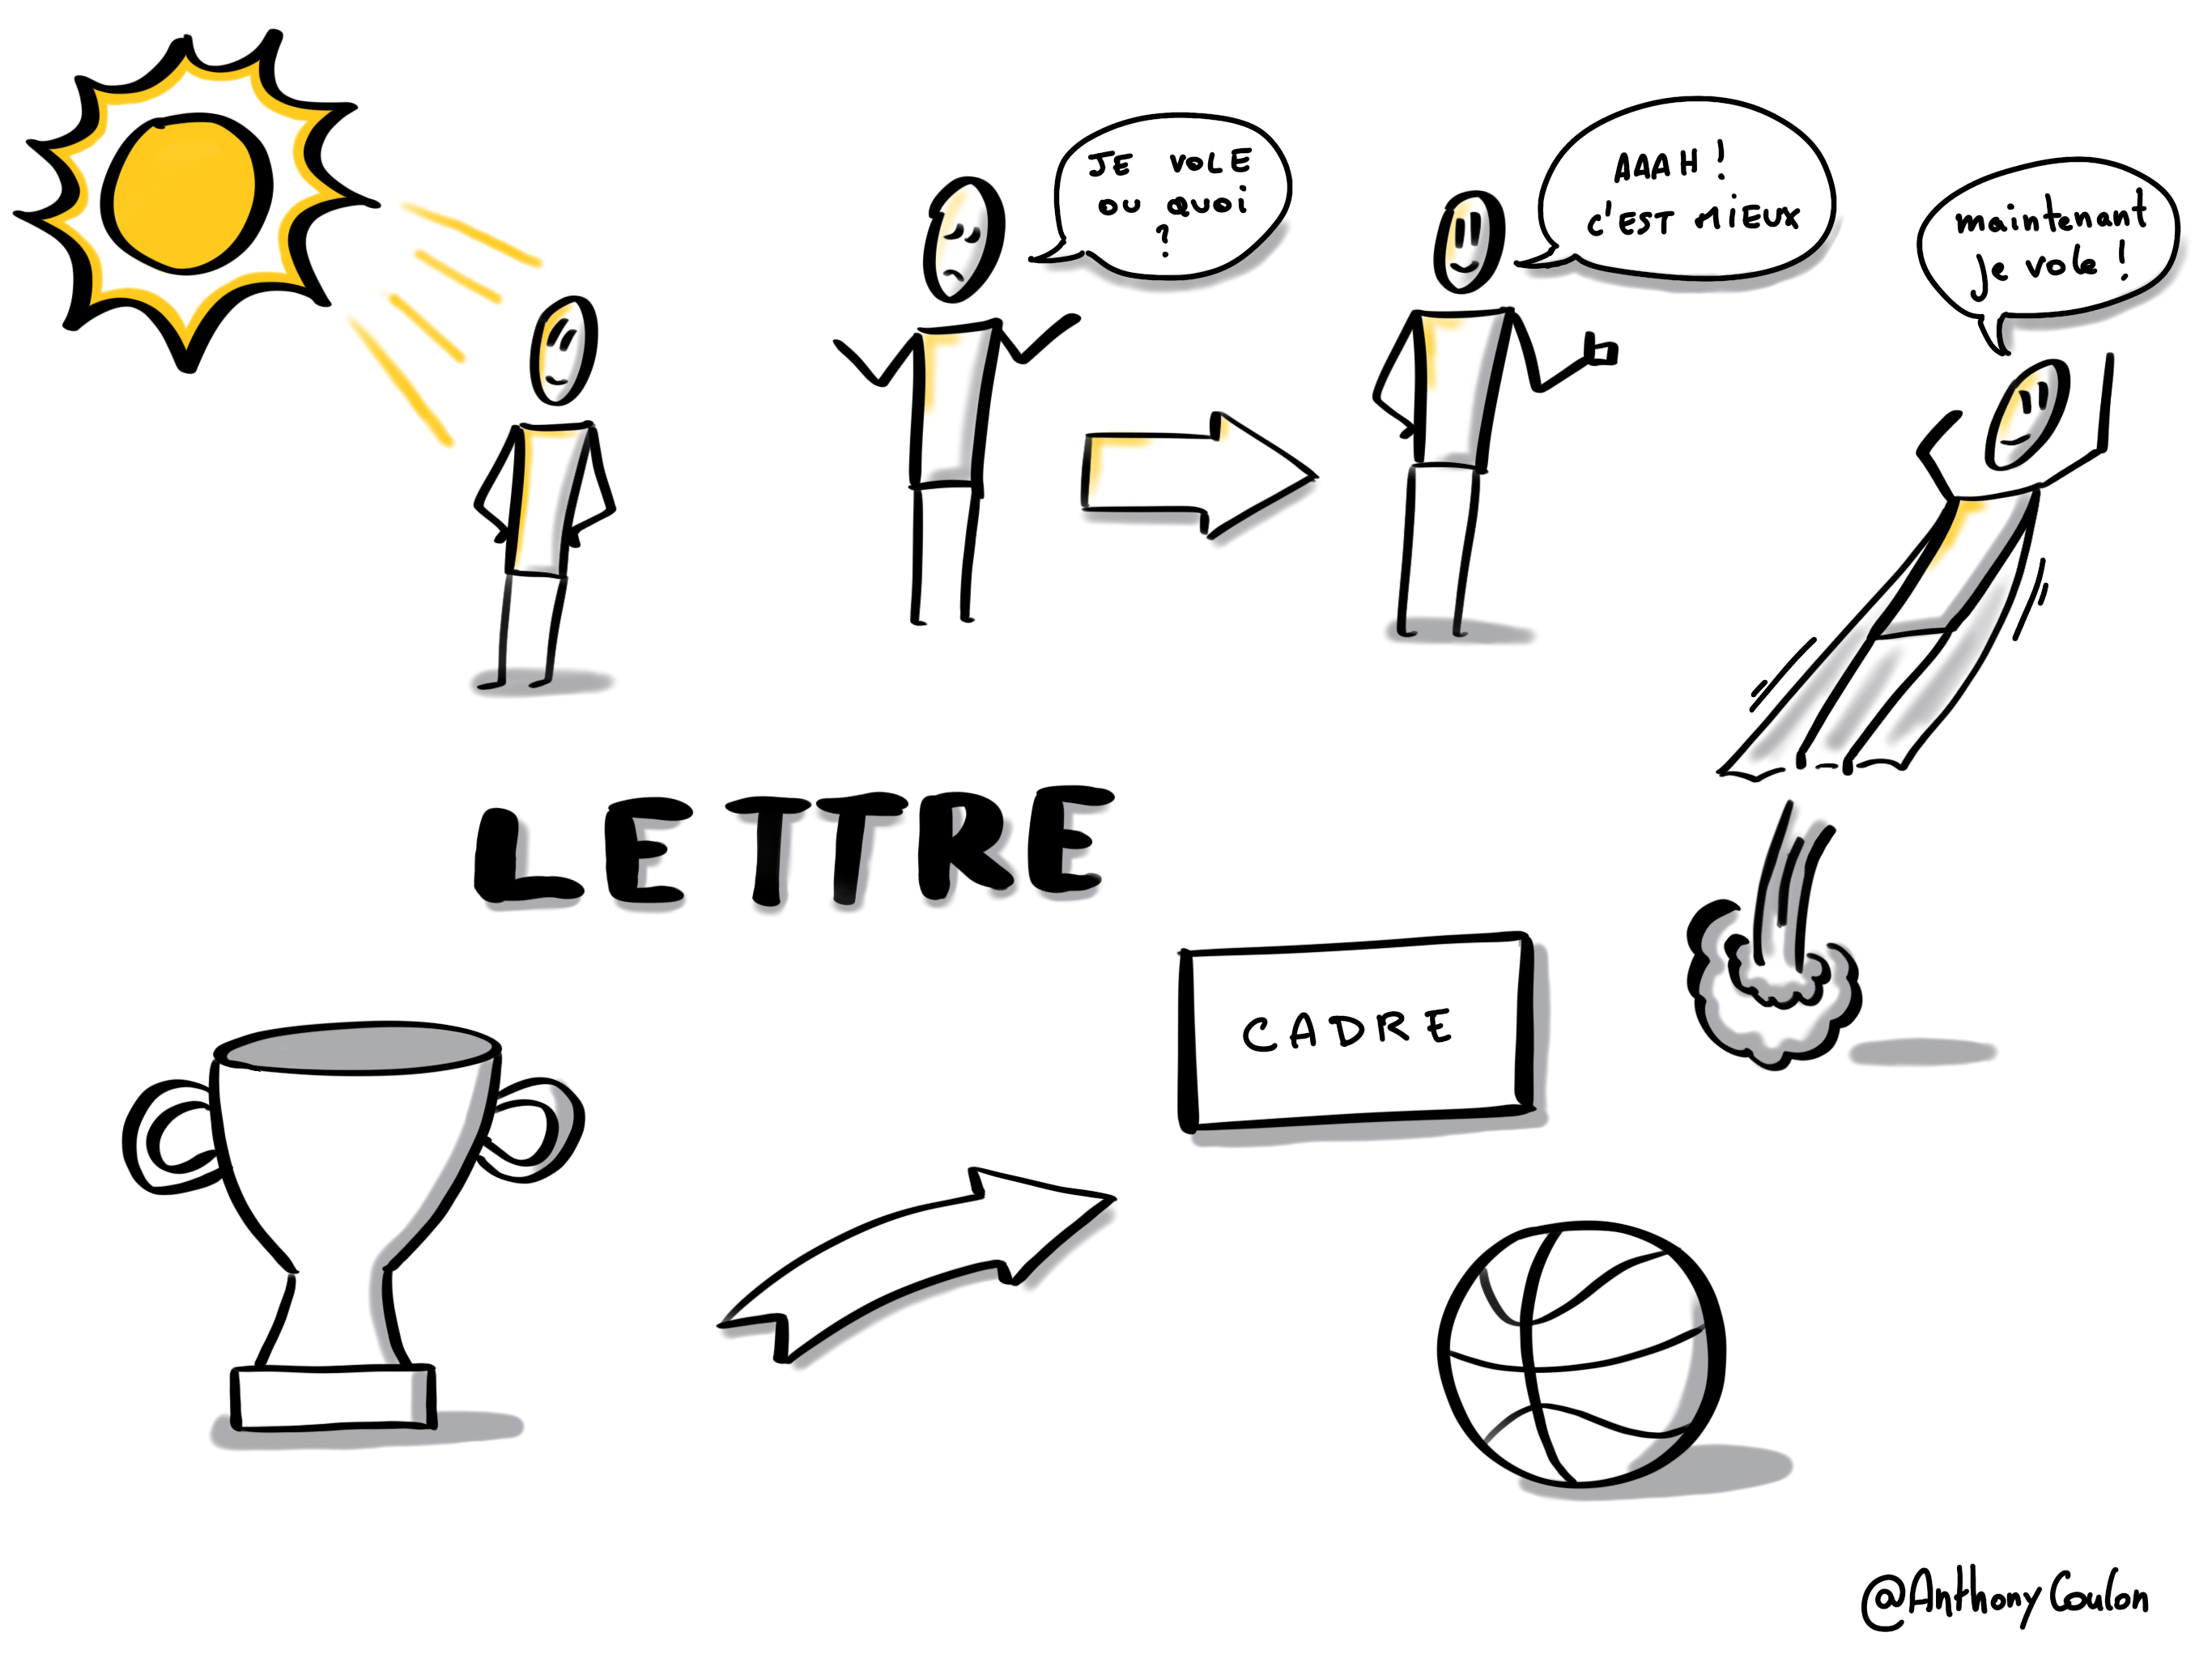 JE VOLE
OU QUOI
?
AAAH !
C'EST MIEUX
maintenant
je vole !
LETTRE
CADRE
@Anthony Coulon